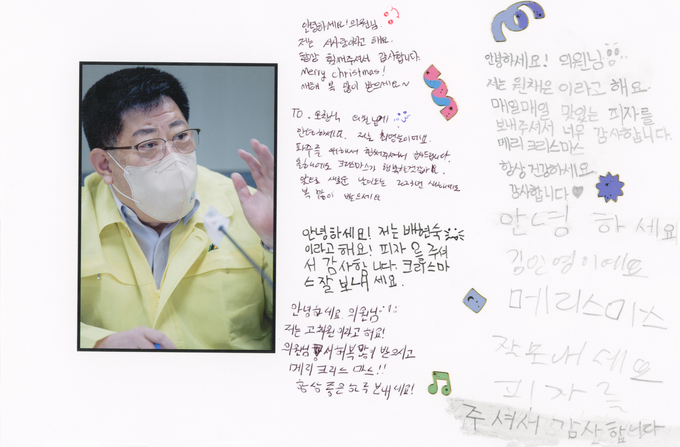 안녕하세요! 의원님
저는 이라고 해요.
항상 힘써주셔서 감사합니다.
Merry Christmas!
새해 복 많이 받으세요~
TO.
안녕하세요. 저는
파주를 위해서 힘써주셔서 감사합니다.
복 많이 받으세요
안녕하세요! 저는 배현숙
이라고 해요! 피자 을 주셔
서 감사합 니다. 크리스마
스 잘 보내 세요.
안녕하세요 의원님
저는 고 라고 해요!
의원님 새해복 많이 받으시고
메리 크리스 마스!!
항상 좋은 하루 보내세요!
안녕하세요! 의원님
저는 원채은 이라고 해요.
매일매일 맛있는 피자를
보내주셔서 너무 감사합니다.
메리크리스마스
항상 건강하세요
감사합니다
안녕 하세요
김민영이에요
메리스마스
잘 보내세요
피자를
주셔서 감사합니다